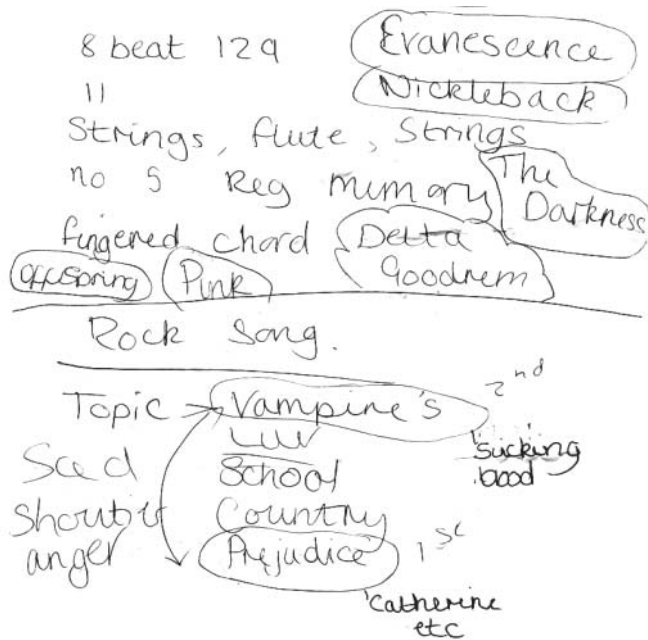 8 beat 129 Evanescence
11 Nickleback
Strings, flute, Strings
no 5 Reg mimory The Darkness
fingered chord Delta Goodrem
Offspring Pink
Rock Song.
Topic → Vampire's 2nd
Luv sucking blood
Sad School
Shouting Country
anger Prejudice 1st
Catherine
etc